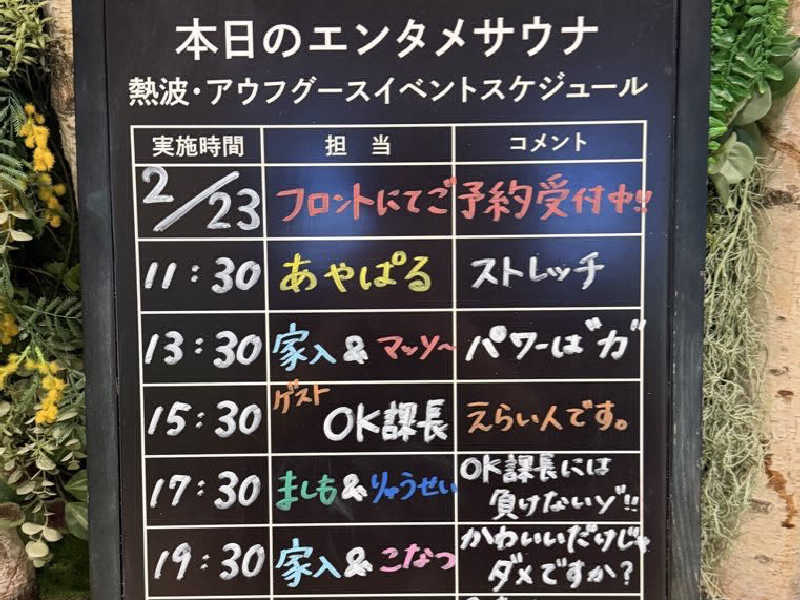 本日のエンタメサウナ
熱波・アウフグースイベントスケジュール
実施時間 担当 コメント
2/23 フロントにてご予約受付中!!
11:30 あやぱる ストレッチ
13:30 家入&マッソ〜 パワーは"力"
15:30 ゲスト OK課長 えらい人です。
17:30 ましも&りゅうせい OK課長には
負けないゾ!!
19:30 家入&こなつ かわいいだけじゃ
ダメですか?